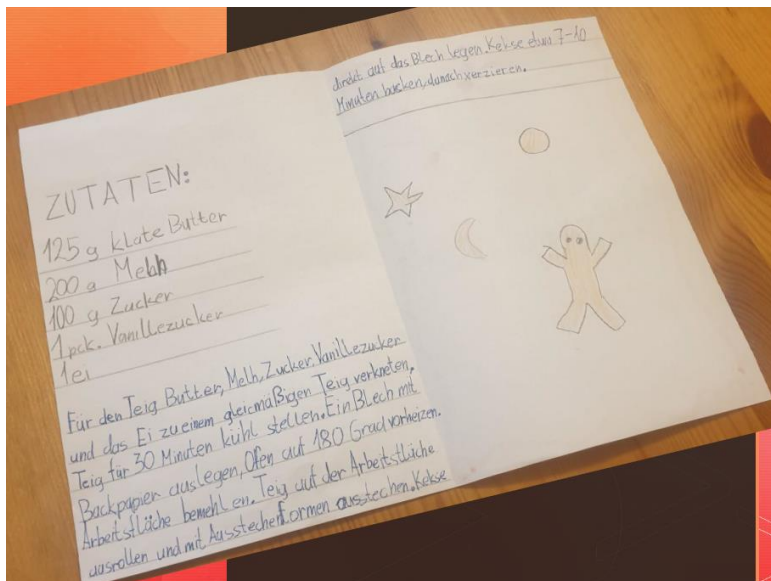 ZUTATEN:
125 g klate Butter
200 g Melh
100 g Zucker
1 pck. Vanillezucker
1ei
Für den Teig Butter, Melh, Zucker, Vanillezucker
und das Ei zu einem gleicmäßigen Teig verkneten,
Teig für 30 Minuten kühl stellen. Ein Blech mit
Backpapier auslegen, Ofen auf 180 Grad vorheizen.
Arbeitsfläche bemehlen. Teig auf der Arbeitsfläche
ausrollen und mit Ausstecherformen ausstechen. Kekse
direkt auf das Blech legen. Kekse etwa 7-10
Minuten backen, danach verzieren.